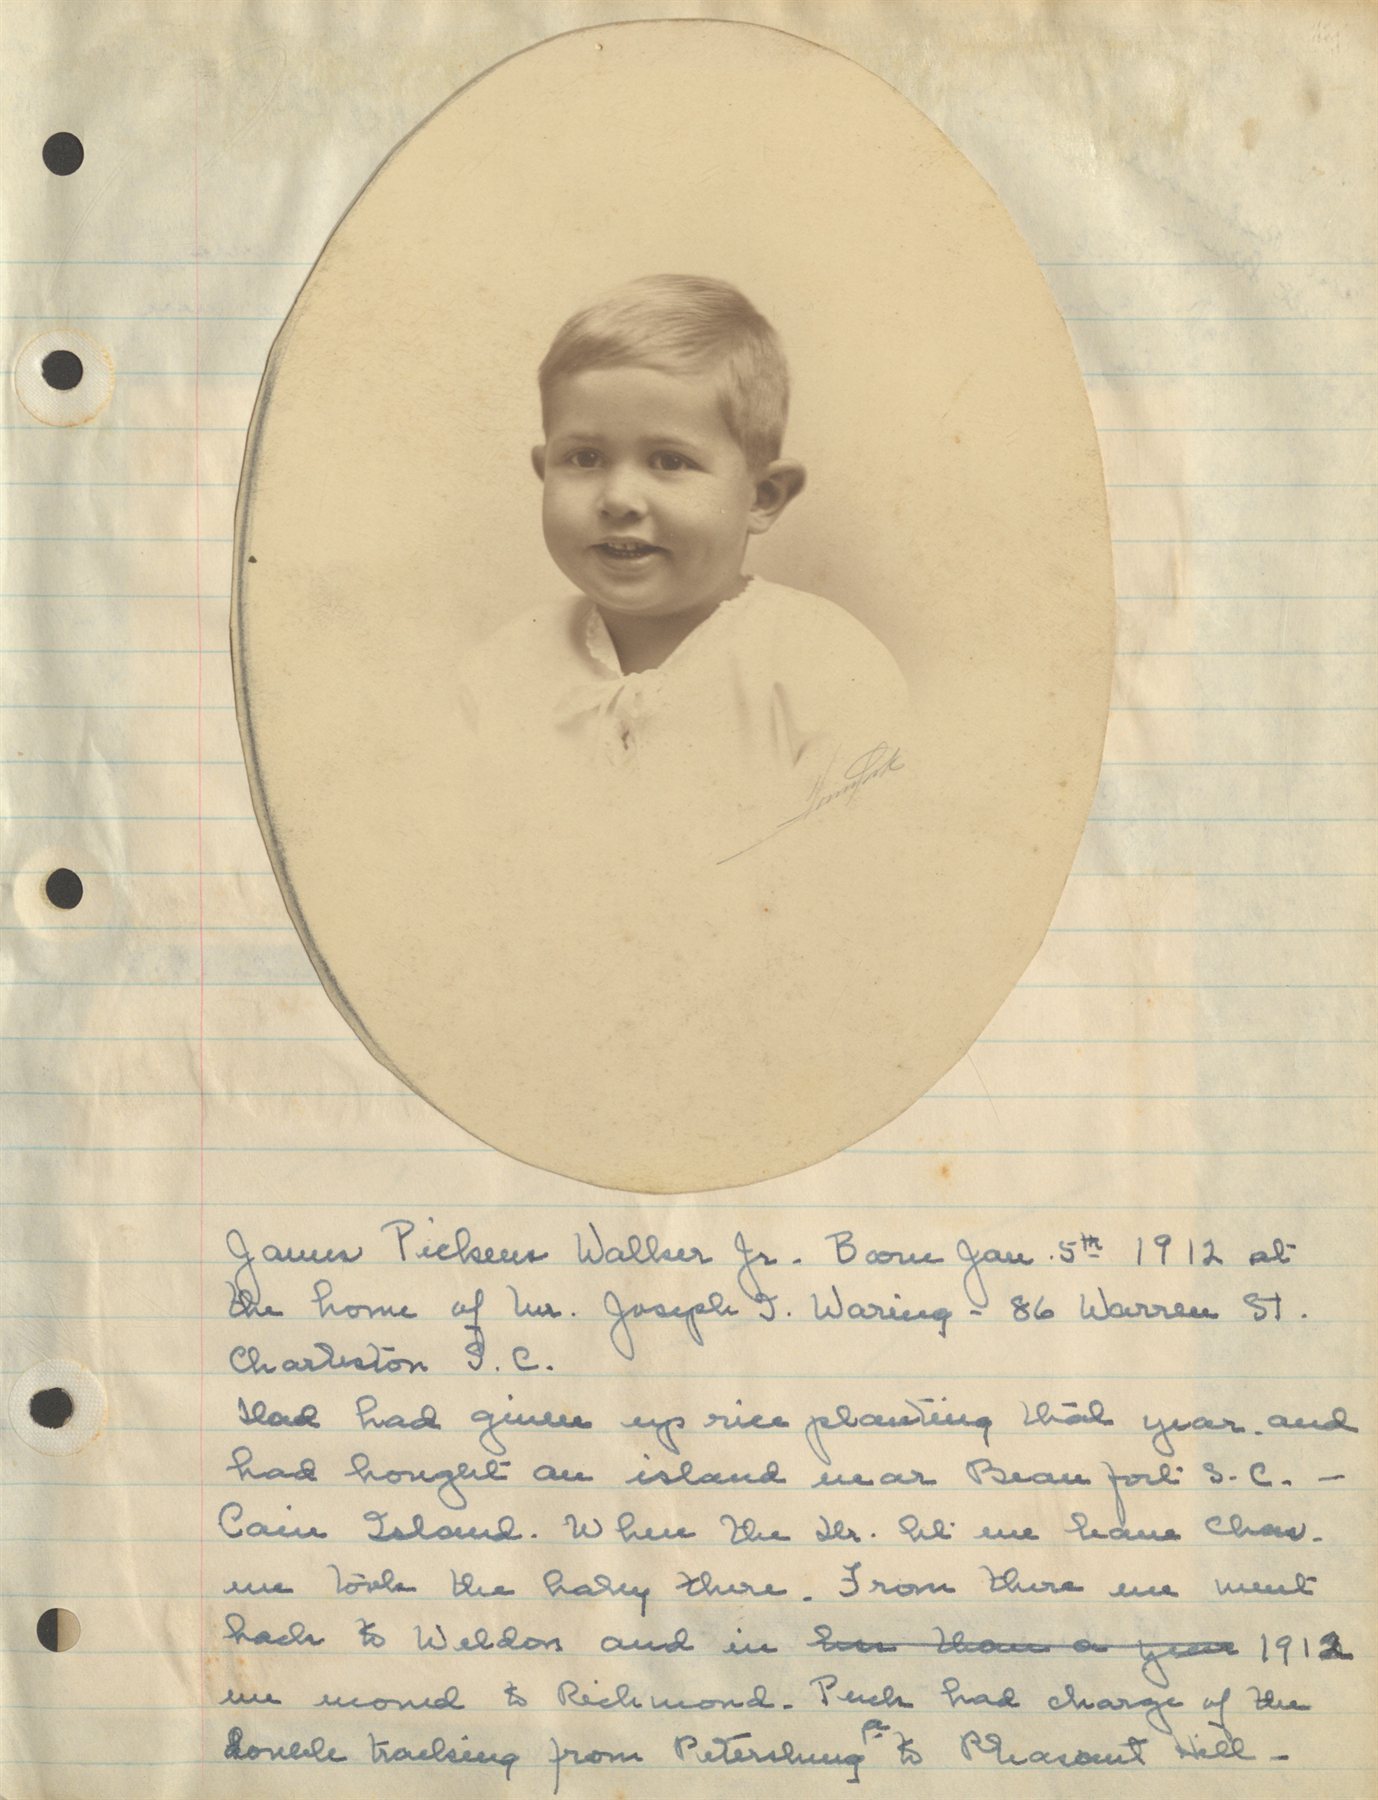 James Pickens Walker Jr. Born Jan. 5th 1912 at
the home of Mr. Joseph I. Waring - 86 Warren St.
Charleston S.C.
Dad had given up rice planting that year and
had bought an island near Beaufort S.C. -
Cain Island. When the Dr. let me leave Chas.
we took the baby there. From there we went
back to Weldon and in less than a year 1912
we moved to Richmond. Pick had charge of the
double tracking from Petersburg to Pleasant Hill -